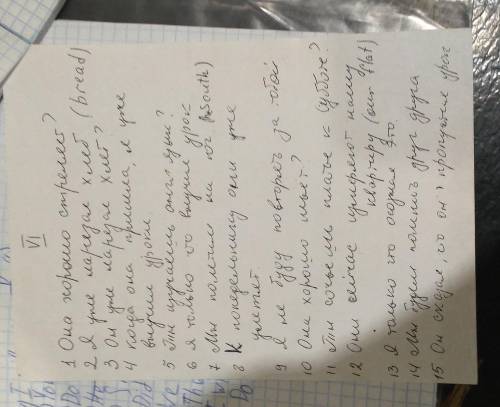 VI
1 Она хорошо стреляет?
2 Я уже нарезал хлеб (bread)
3 Он уже нарезал хлеб?
4 Когда она пришла, я уже
выучил уроки
5 Ты изучаешь англ язык?
6 Я только что выучил урок
7 Мы полетим на юг (South)
8 К понедельнику они уже
улетят.
9 Я не буду повторять за тобой
10 Она хорошо шьет?
11 Ты сошьешь платье к субботе?
12 Они сейчас измеряют нашу
квартиру (our flat)
13 Я только что это.
14 Мы будем помнить друг друга
15 Он сказал, что он пропустил урок